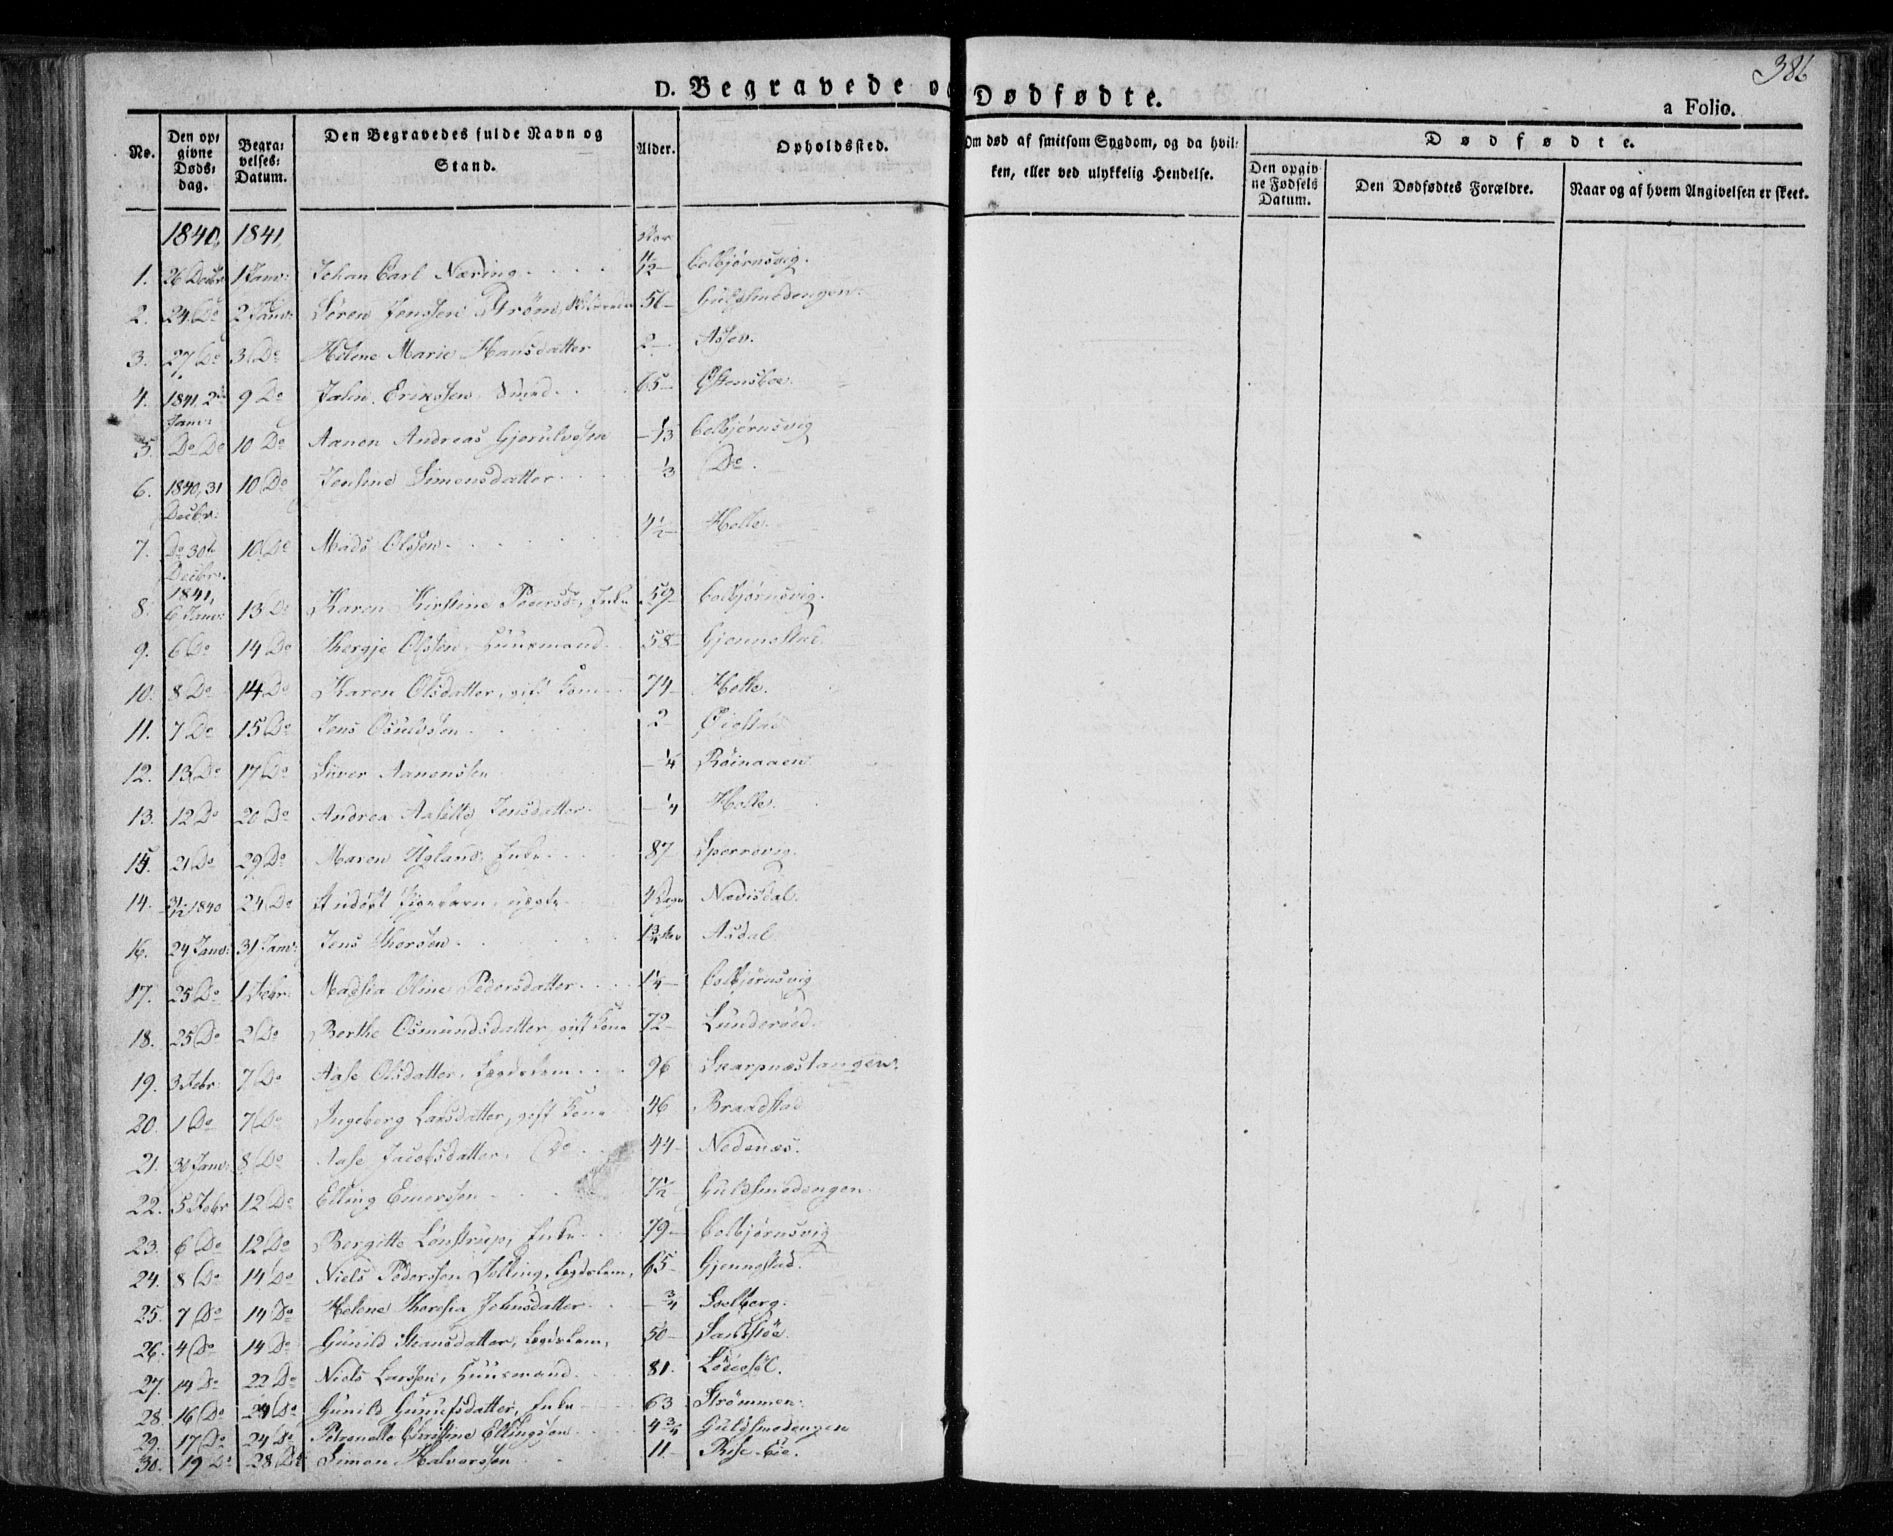 386
D. Begravede og Dødfødte.
a Folio.
No. Den opgivne Dødsdag. Begravelses-Datum. Den Begravedes fulde Navn og Stand. Alder. Opholdssted. Om død af smitsom Sygdom, og da hvilken, eller ved ulykkelig Hendelse. Dødfødte.
Den opgivne Fødsels Datum. Den Dødfødtes Forældre. Naar og af hvem Angivelsen er skeet.
1840, 1841
1. 26 Decbr 1 Janv: Johan Carl Næring 11/12 Colbjørnsvig.
2. 24 Do 2 Janv: Søren Jenssen Strøm, 56 Guldsmedengen.
3. 27 Do 3 Do Helene Marie Hansdatter 2 Assev.
4. 1841, 2de Janv: 9 Do Jahn Erikssen, Smed 65
5. Do Do 10 Do Aanon Andreas Gjerulvsen 1/3 Colbjørnsvig
6. 1840, 31 Decbr. 10 Do Jensine Simonsdatter 1/3 Do
7. Do 30te Decbr. 10 Do Mads Olssen 4 1/2 Holte
8. 1841, 6 Janv: 13 Do Karen Kirstine Pedersd., Enke 59 Colbjørnsvig.
9. 6 Do 14 Do Thergje Olssen, Huusmand 58 Gjennestad
10. 8 Do 14 Do Karen Olsdatter, gift Kone 74 Holte.
11. 7 Do 15 Do Jens Osulvsen 2 Øiestad
12. 13 Do 17 Do Siver Aanonsen 1/4 Røinaaen
13. 12 Do 20 Do Andrea Aasille Jensdatter 1/4 Holte.
15. 21 Do 29 Do Maren Ugland, Enke 87 Sperrevig.
14. 31/12 1840 24 Do Pigebarn, uægte 4 Dage Nævisdal.
16. 24 Janv: 31 Janv: Jens Thorsen 1 3/4 Aar Asdal
17. 25 Do 1 Febr: Madsia Oline Pedersdatter 1 1/4 Colbjørnsvig
18. 25 Do 2 Do Berthe Osmundsdatter, gift Kone 72 Lunderød.
19. 3 Febr: 7 Do Aase Olsdatter, Lægdslem 96 Skarpnæstangen.
20. 1 Do 7 Do Ingeborg Larsdatter, gift Kone 46 Brandstad
21. 30 Janv: 8 Do Aase Jacobsdatter, Do 44 Nedenæs.
22. 5 Febr 12 Do Elling Emerssen 7 1/2 Guldsmedengen.
23. 6 Do 12 Do Bergitte Lønstrup, Enke 79 Colbjørnsvig
24. 8 Do 14 Do Niels Pederssen Jelling, Lægdslem, 65 Gjennestad.
25. 7 Do 14 Do Helene Theresia Johnsdatter 3/4 Soelberg.
26. 4 Do 14 Do Gunild Steansdatter, Lægdslem, 50
27. 14 Do 22 Do Niels Larssen, Huusmand 81. Løddesøl.
28. 16 Do 24 Do Gunild Gunufsdatter, Enke 63 Strømmen.
29. 17 Do 24 Do Petronelle Christine Ellingsen 4 3/4 Guldsmedengen
30. 19 Do 28 Do Simon Halvorssen 11 Rise-